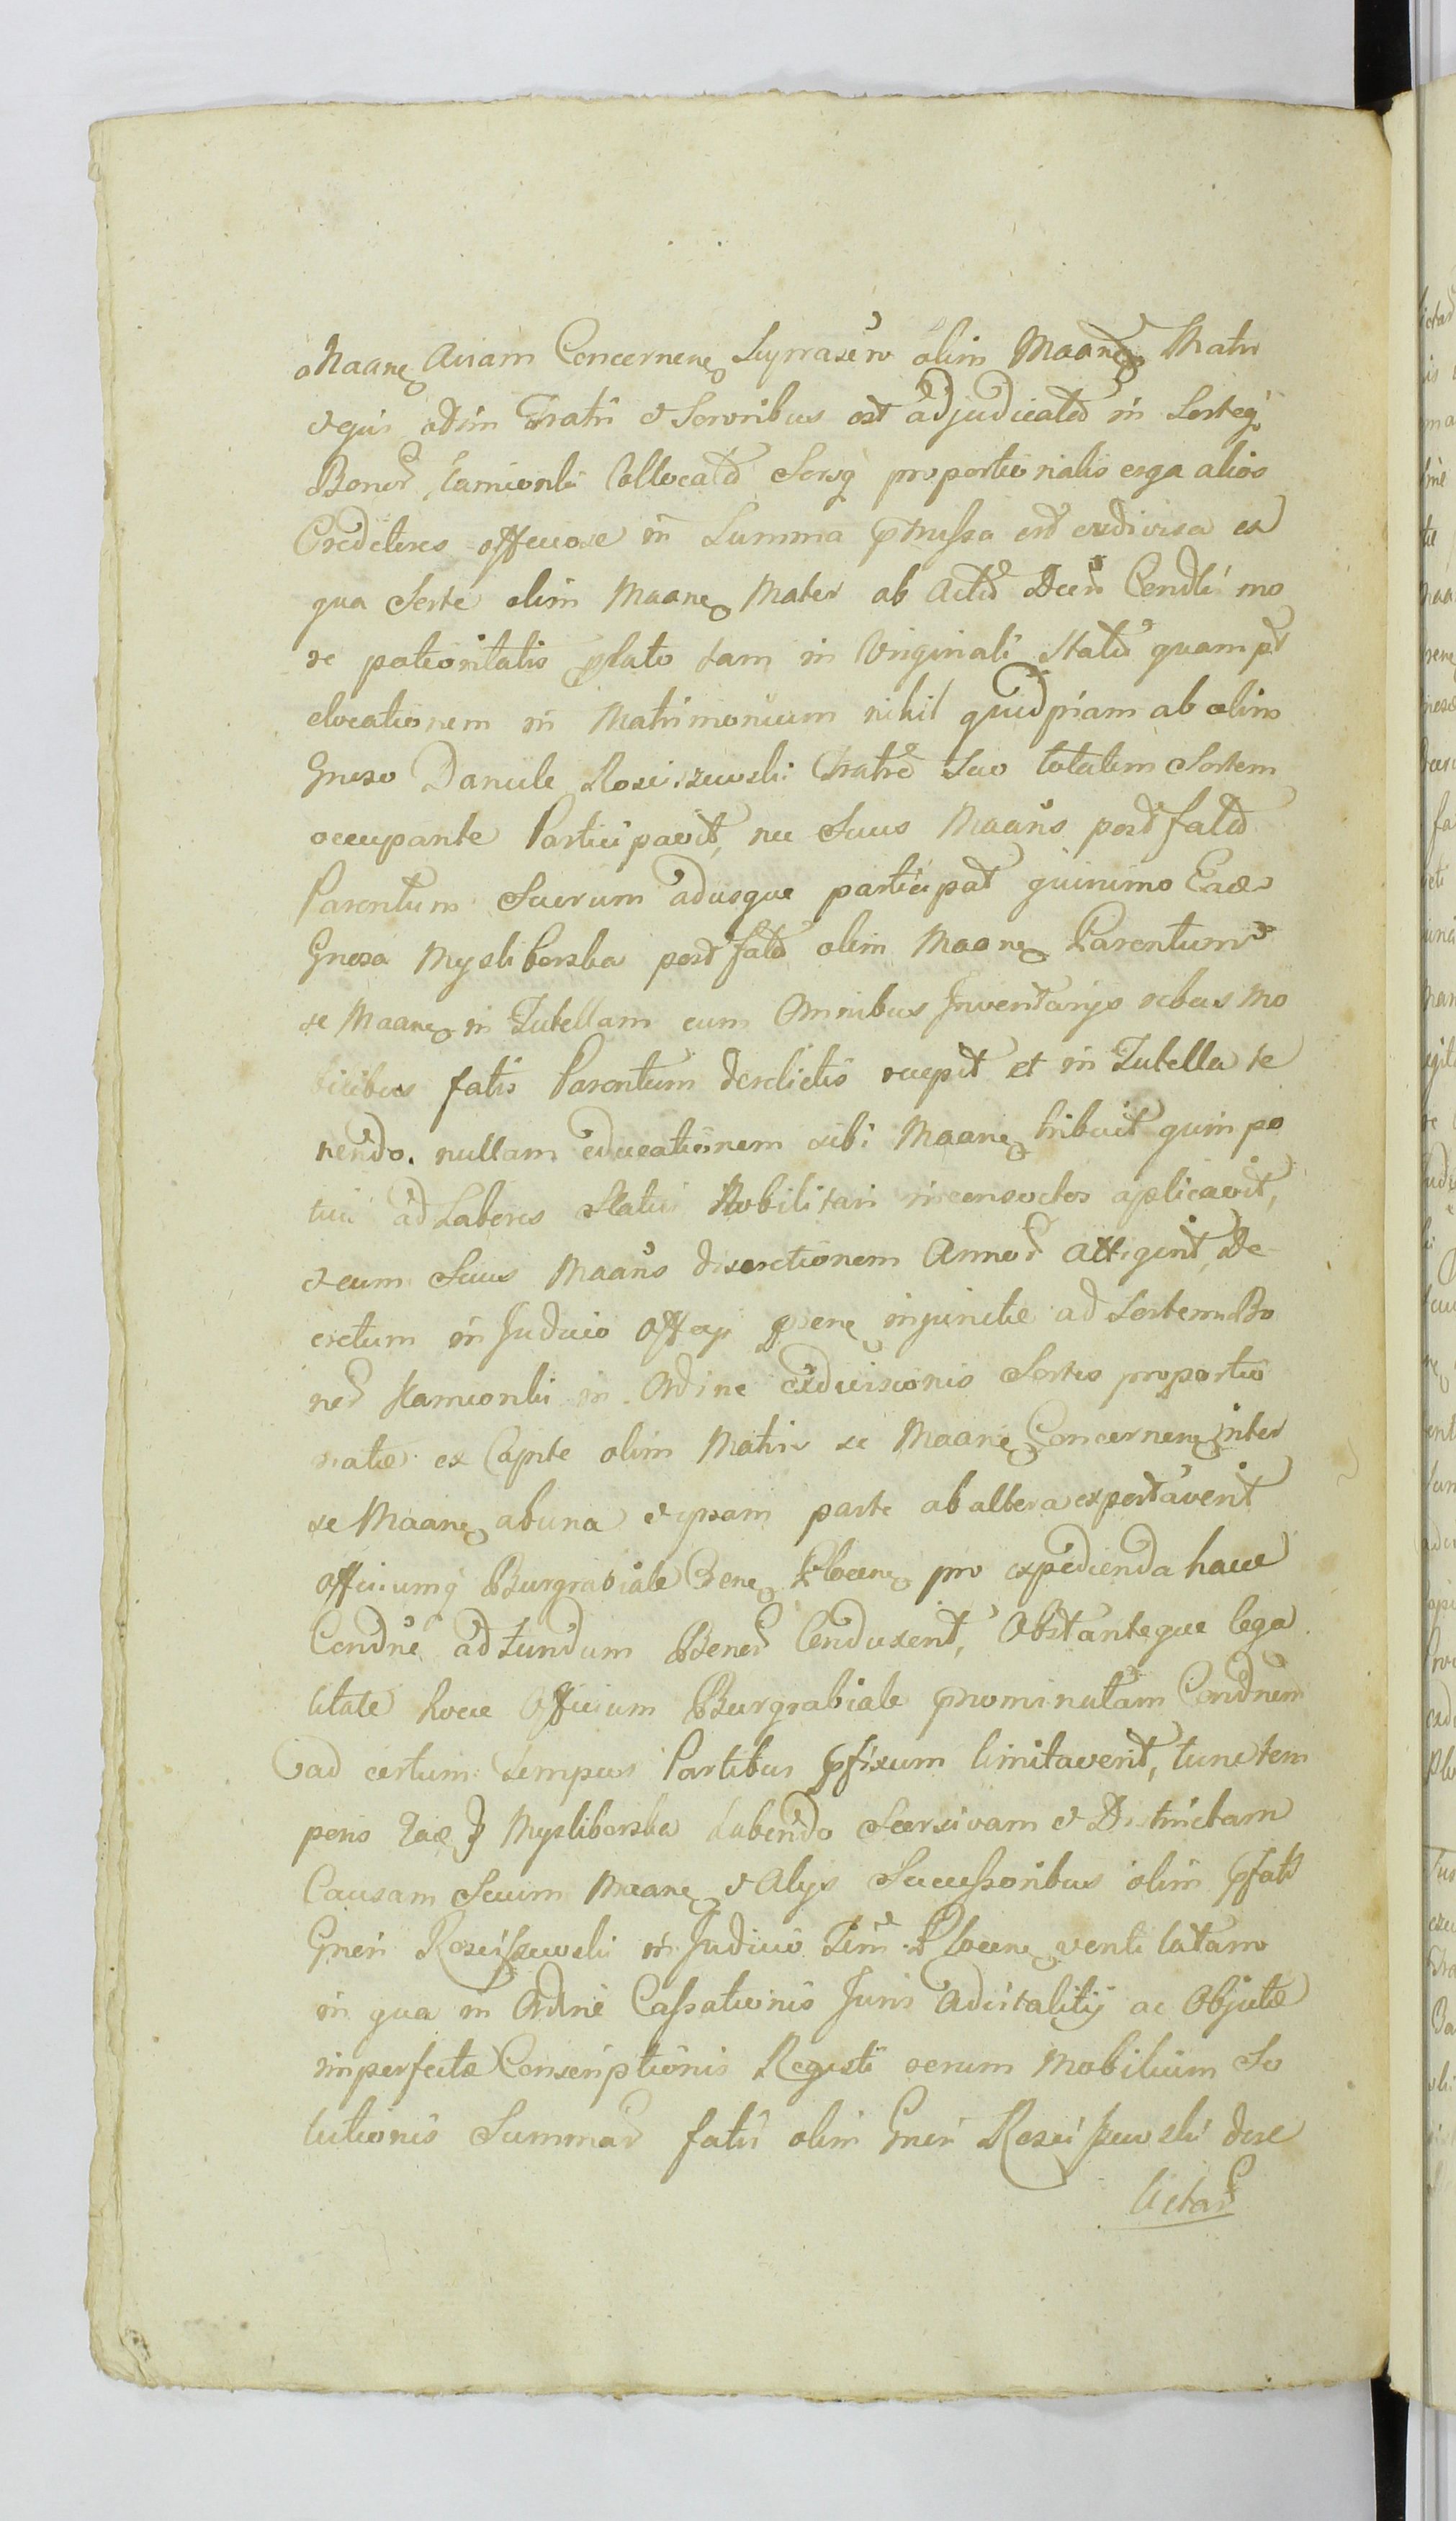 Maane Aviam Concernene Suprascri olim Maane Matri
et qui adim Fratri et Sororibus est adjudicata in Sorteq
Bonor Kamionki Collocata Sorsq proportionalis erga alios
Creditores officiose in Summa pmissa est exdivisa ex
qua Sorte olim Maane Mater ab Actu Decr Condli mo
re potioritatis plato tam in Originali Statu quam pt
elocationem in Matrimonium nihil quidpiam ab olim
Gneso Daniele Rosciszewski Fratre Suo totalem Sortem
occupante Participavit, nec Suus Maans post fata
Parentum Suorum adusque participat quinimo Eade
Gnesa Mysliborska post fata olim Maane Parentum
se Maane in Tutellam cum Omnibus Inventarijs rebus Mo
bilibus fatis Parentum derelictis recepit et in Tutella te
nendo. nullam educationem sibi Maane tribuit quin po
tius ad Labores Statui Nobilitari inconsvetos aplicavit,
et cum Suus Maans discretionem Annor attigerit De
cretum in Judicio Offcij pene injunctie ad Sortem Bo
nor Kamionki in Ordine exdivisionis Sortis proportio
natae ex Capite olim Matris se Maane Concernene inter
se Maane ab una et ipsam parte ab altera exportaverit
Officiumq Burgrabiale Crene Plocene pro expedienda hacce
Condne ad Fundum Bonor Conduxerit, Obstanteque lega
litate hocce Officium Burgrabiale pnominatam Condnem
ad certum tempus Partibus pfixum limitaverit, tunc tem
poris Eae G Mysliborska habendo Seorsivam et Districtam
Causam Seum Maane et Alijs Successoribus olim pfati
Gneri Rosciszewski in Judicio Trri Plocene ventilatam
in qua in Ordine Cassationis Juris Advitalitij ac Objectae
imperfectae Conscriptionis Regesti rerum Mobilium So
lutionis Summar fatis olim Gneri Rosciszewski dere
lictar